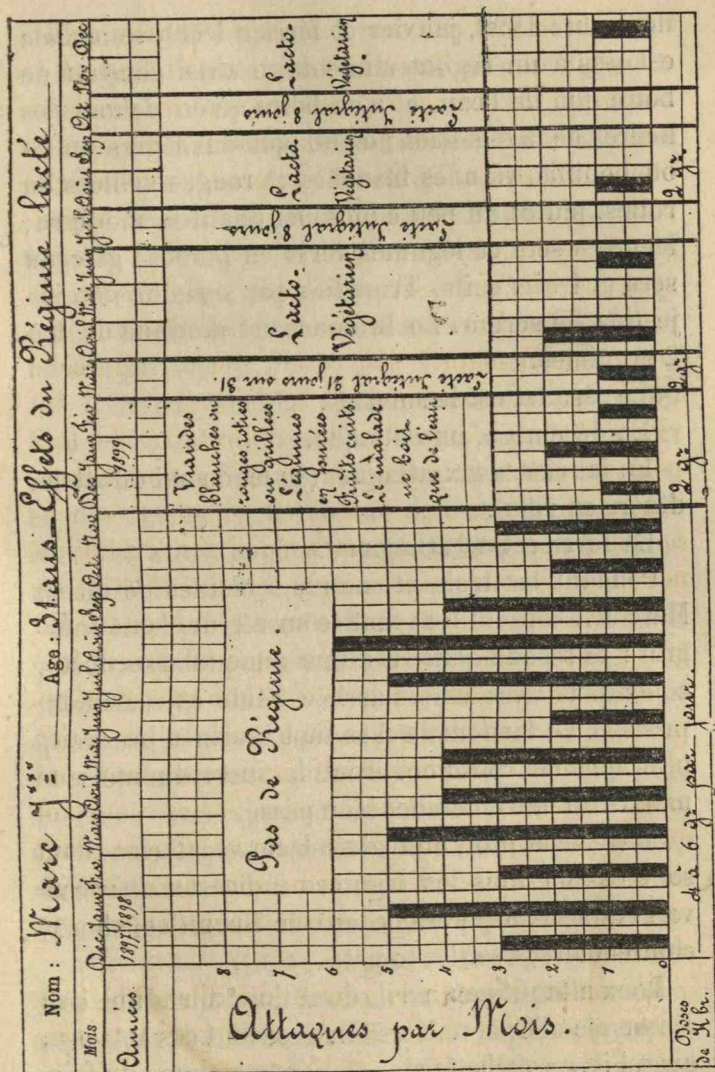 Nom : Marc J*** Age : 31 ans – Effets du Régime lacté
Mois Dec Janv Fev Mars Avril Mai Juin Juil Août Sep Oct Nov Dec Janv Fev Mars Avril Mai Juin Juil Août Sep Oct Nov Dec
Années 1897 1898 1899
Attaques par Mois.
8
7
6
5
4
3
2
1
0
Pas de Régime.
Viandes
blanches ou
rouges rôties
ou grillées
Légumes
en purées
Fruits cuits
Le malade
ne boit
que de l'eau
Lacté Intégral 21 jours sur 31.
Lacto-
Végétarien
Lacté Intégral 8 jours.
Lacto-
Végétarien
Lacté Intégral 8 jours
Lacto-
Végétarien
Doses
de KBr.
4 à 6 gr par jour
2 gr
2 gr
2 gr